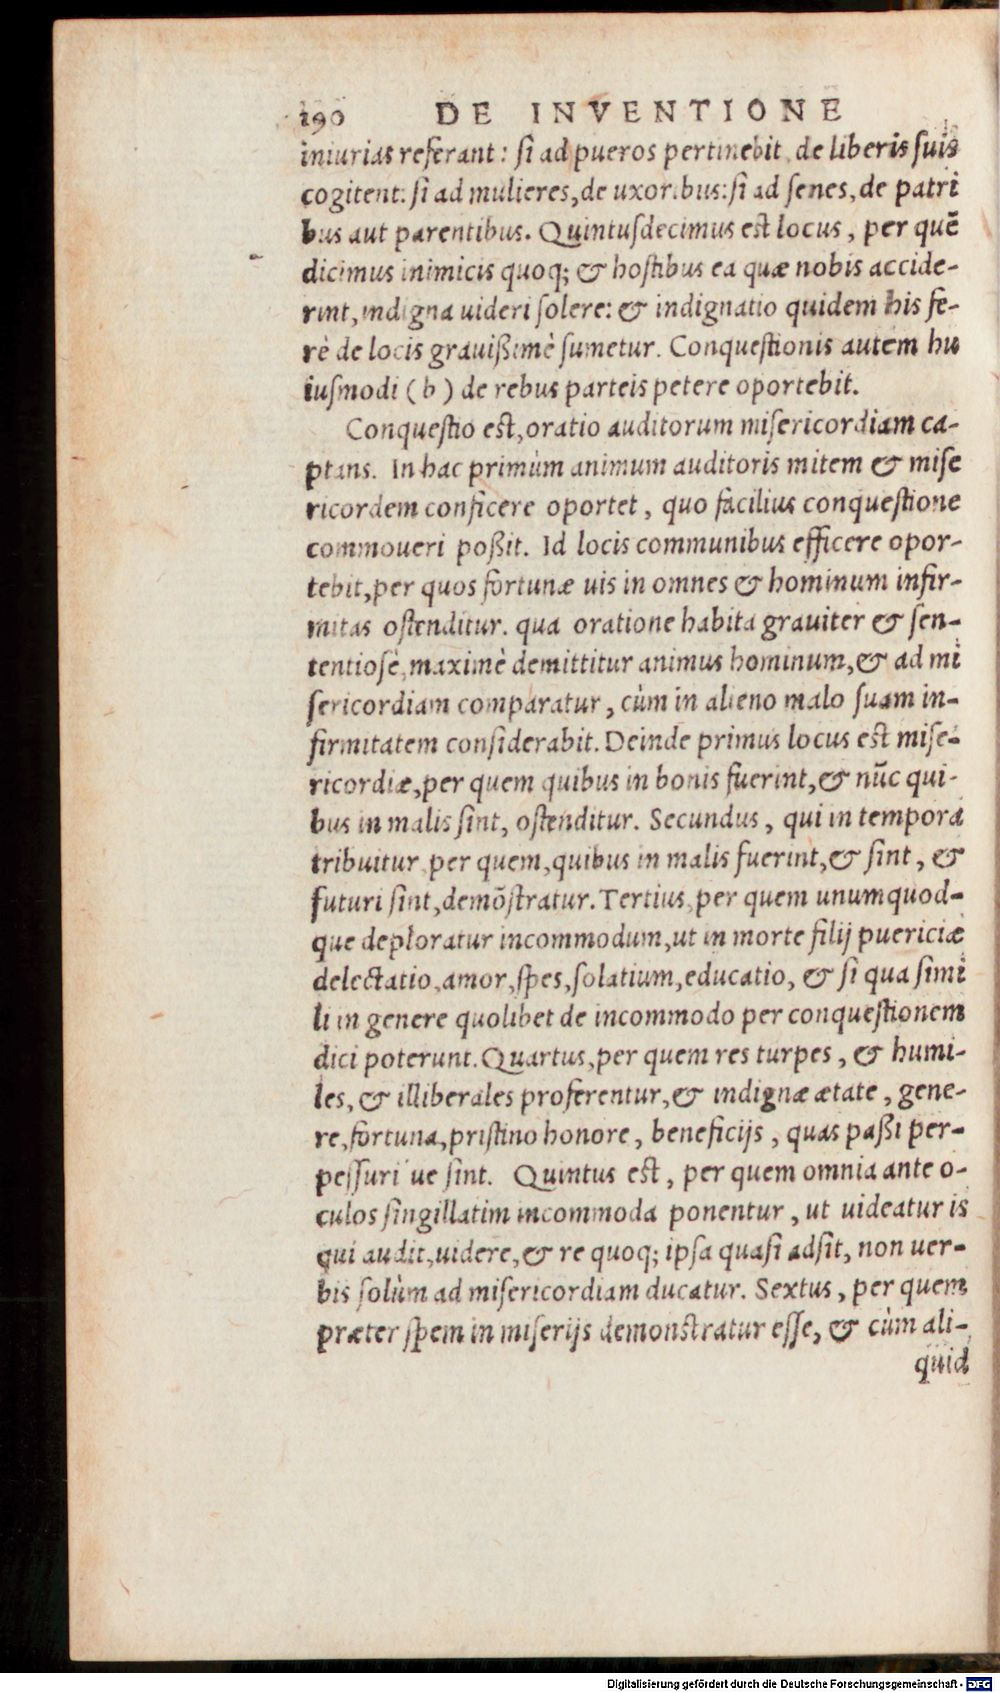 190 DE INVENTIONE
iniurias referant: ſi ad pueros pertinebit, de liberis ſuis
cogitent: ſi ad mulieres, de uxoribus: ſi ad ſenes, de patri
bus aut parentibus. Quintuſdecimus eſt locus, per quē
dicimus inimicis quoq; & hoſtibus ea quæ nobis accide-
rint, indigna uideri ſolere: & indignatio quidem his fe-
rè de locis grauißimè ſumetur. Conqueſtionis autem hu
iuſmodi (b) de rebus parteis petere oportebit.
Conqueſtio eſt, oratio auditorum miſericordiam ca-
ptans. In hac primùm animum auditoris mitem & miſe
ricordem conficere oportet, quo facilius conqueſtione
commoueri poßit. Id locis communibus efficere opor-
tebit, per quos fortunæ uis in omnes & hominum infir-
mitas oſtenditur. qua oratione habita grauiter & ſen-
tentioſè, maximè demittitur animus hominum, & ad mi
ſericordiam comparatur, cùm in alieno malo ſuam in-
firmitatem conſiderabit. Deinde primus locus eſt miſe-
ricordiæ, per quem quibus in bonis fuerint, & nūc qui-
bus in malis ſint, oſtenditur. Secundus, qui in tempora
tribuitur, per quem, quibus in malis fuerint, & ſint, &
futuri ſint, demōſtratur. Tertius, per quem unumquod-
que deploratur incommodum, ut in morte filij puericiæ
delectatio, amor, ſpes, ſolatium, educatio, & ſi qua ſimi
li in genere quolibet de incommodo per conqueſtionem
dici poterunt. Quartus, per quem res turpes, & humi-
les, & illiberales proferentur, & indignæ ætate, gene-
re, fortuna, priſtino honore, beneficijs, quas paßi per-
peſſuri ue ſint. Quintus eſt, per quem omnia ante o-
culos ſingillatim incommoda ponentur, ut uideatur is
qui audit, uidere, & re quoq; ipſa quaſi adſit, non uer-
bis ſolùm ad miſericordiam ducatur. Sextus, per quem
præter ſpem in miſerijs demonſtratur eſſe, & cùm ali-
quid
Digitalisierung gefördert durch die Deutsche Forschungsgemeinschaft - DFG